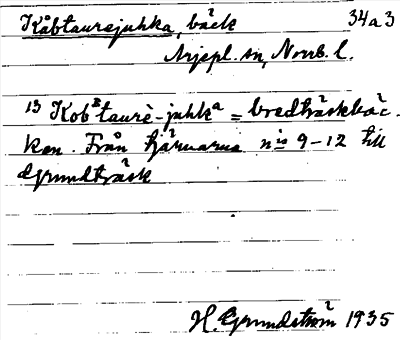 Kåbtaurejuhka, bäck 34a3
Arjepl. sn, Norrb. l.
13 Kobᵉtaurè-juhkᵃ = bredträskbäc-
ken. Från tjärnarna nis 9-12 till
Grundträsk
H. Grundström 1935